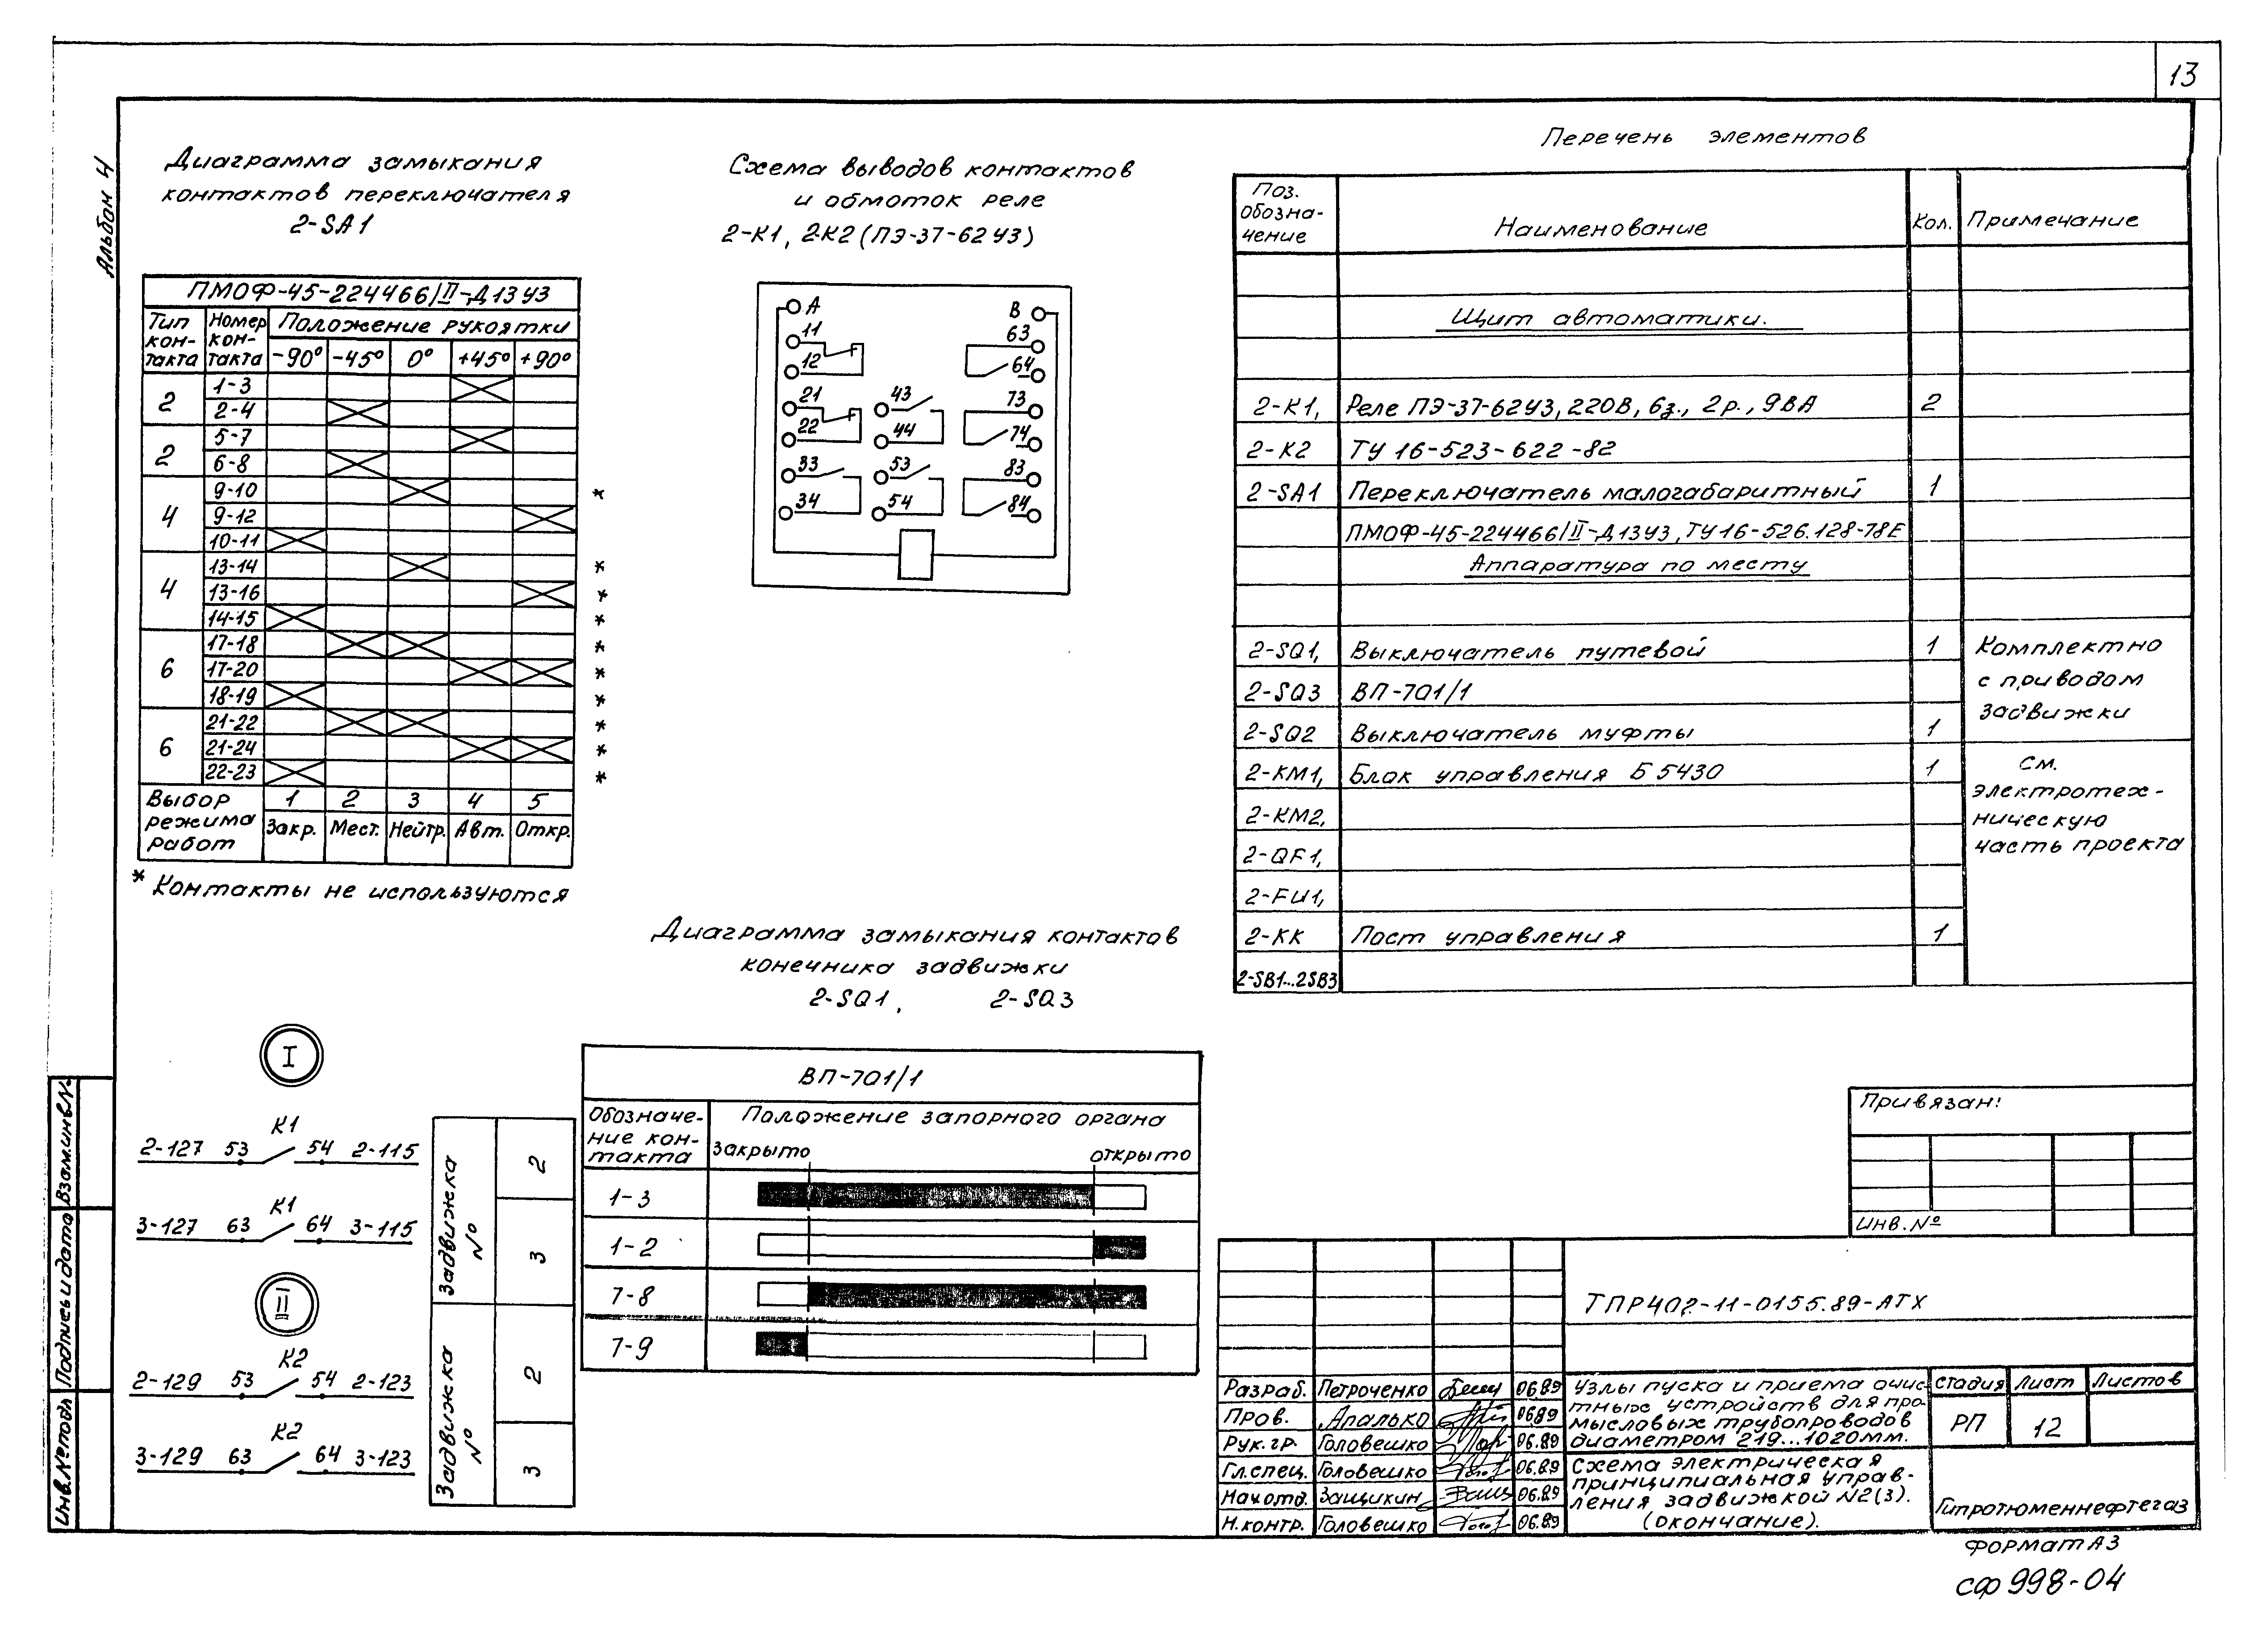 13
Альбом 4
Диаграмма замыкания
контактов переключателя
2-SA1
ПМОФ-45-224466/II-Д13У3
Тип кон-такта
Номер кон-такта
Положение рукоятки
-90° -45° 0° +45° +90°
2
1-3
2-4
2
5-7
6-8
4
9-10 *
9-12
10-11
4
13-14 *
13-16 *
14-15 *
6
17-18 *
17-20 *
18-19 *
6
21-22 *
21-24 *
22-23 *
Выбор режима работ
1 2 3 4 5
Закр. Мест. Нейтр. Авт. Откр.
* Контакты не используются
Схема выводов контактов
и обмоток реле
2-К1, 2-К2 (ПЭ-37-62У3)
А В
11 63
12 64
21 43 73
22 44 74
33 53 83
34 54 84
Перечень элементов
Поз. обозна-чение
Наименование
Кол.
Примечание
Щит автоматики.
2-К1, Реле ПЭ-37-62У3, 220В, 6з., 2р., 9ВА 2
2-К2 ТУ 16-523-622-82
2-SA1 Переключатель малогабаритный 1
ПМОФ-45-224466/II-Д13У3, ТУ16-526.128-78Е
Аппаратура по месту
2-SQ1, Выключатель путевой 1 Комплектно
2-SQ3 ВП-701/1 с приводом
задвижки
2-SQ2 Выключатель муфты 1
2-КМ1, Блок управления Б5430 1 см.
электротех-
2-КМ2, ническую
2-QF1, часть проекта
2-FU1,
2-КК Пост управления 1
2-SB1...2SB3
Диаграмма замыкания контактов
конечника задвижки
2-SQ1, 2-SQ3
ВП-701/1
Обозначе-ние кон-такта
Положение запорного органа
закрыто открыто
1-3
1-2
7-8
7-9
I
К1
2-127 53 54 2-115
К1
3-127 63 64 3-115
II
К2
2-129 53 54 2-123
К2
3-129 63 64 3-123
Задвижка №
2
3
Задвижка №
2
3
Привязан:
Инв. №
ТПР402-11-0155.89-АТХ
Разраб. Петроченко 06.89
Пров. Апалько 06.89
Рук. гр. Головешко 06.89
Гл.спец. Головешко 06.89
Нач.отд. Защихин 06.89
Н.контр. Головешко 06.89
Узлы пуска и приема очис-
тных устройств для про-
мысловых трубопроводов
диаметром 219...1020мм.
Схема электрическая
принципиальная управ-
ления задвижкой N2(3).
(окончание).
Стадия Лист Листов
РП 12
Гипротюменнефтегаз
Формат А3
СФ 998-04
Взам.инв.№
Подпись и дата
Инв.№ подл